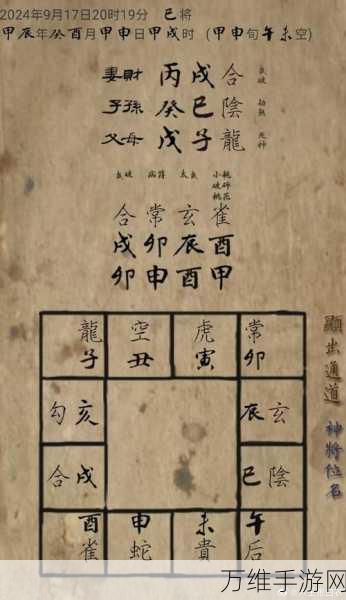 2024年9月17日20时19分 巳将
甲辰年癸酉月甲申日甲戌时 (甲申旬午未空)
妻財 丙戌合 良破
子孫 癸巳陰 劫煞
父母 戊子龍 死神
良破 病符 太良 小破桃 桃碎花
合常玄雀
戌卯辰酉
卯申酉甲
龍子 空丑 虎寅 常卯
勾亥 辰玄
合戌 巳陰
酉雀 申蛇 未貴 午后
顯出通道
神將位名
万维手游网